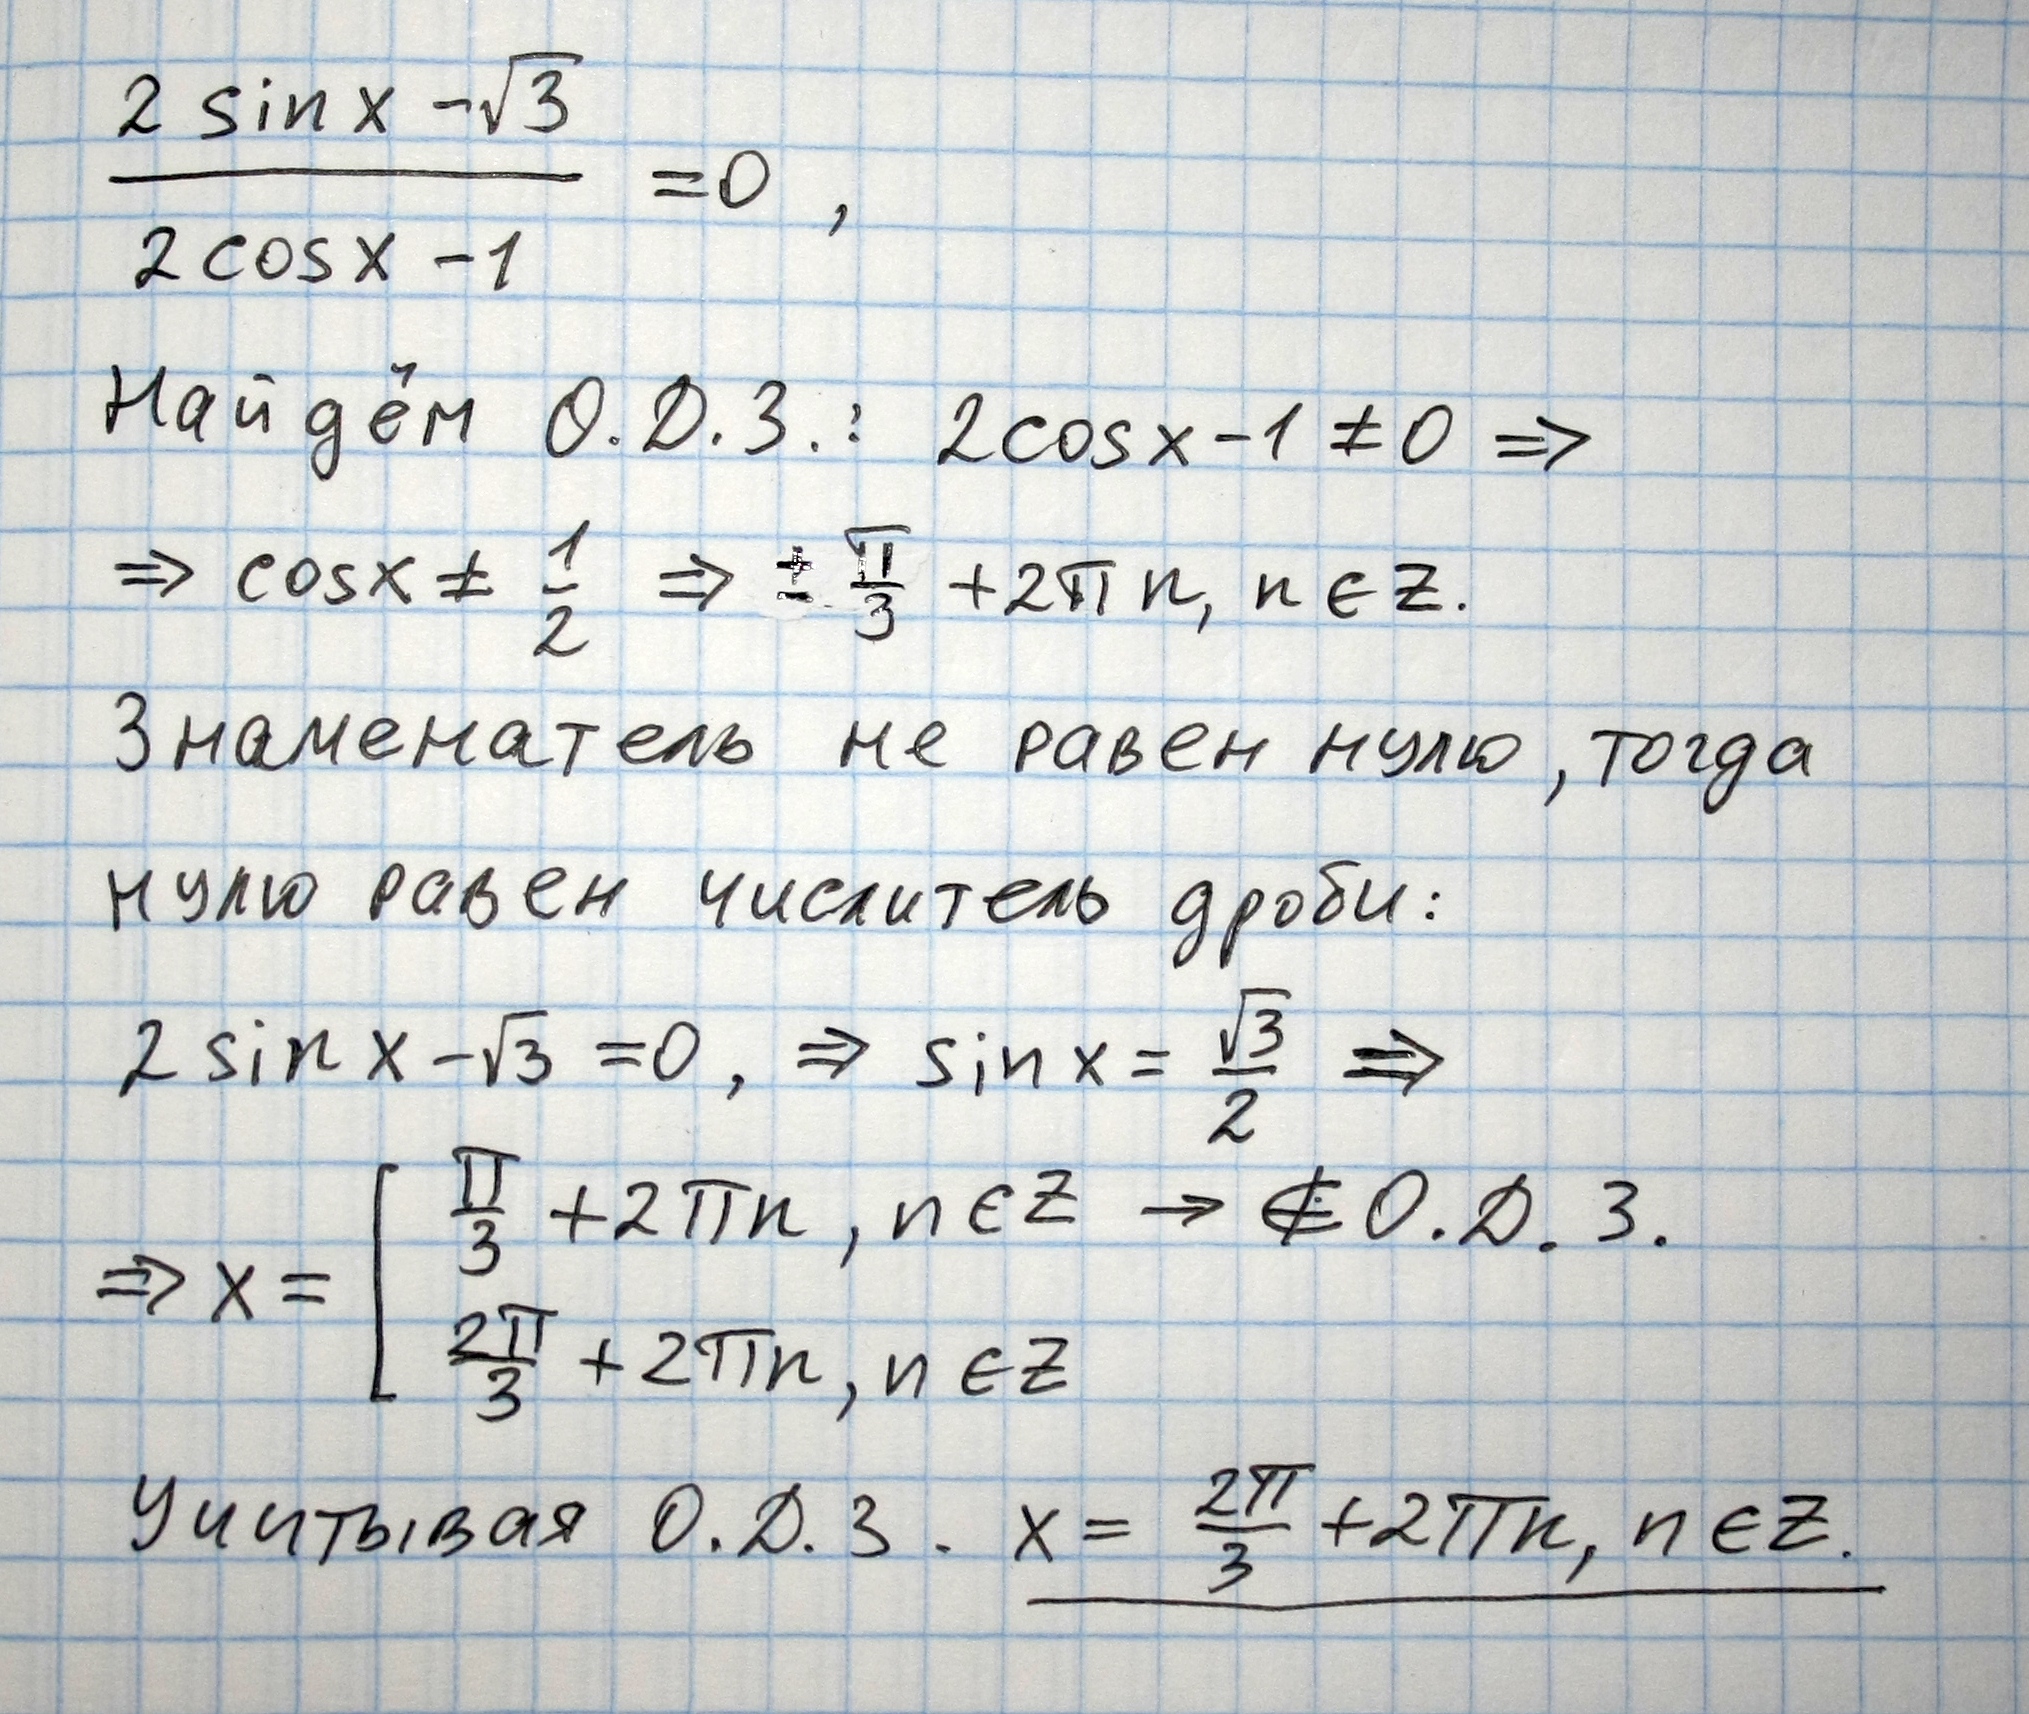 2 sin x - √3
―――――― = 0 ,
2 cos x - 1
Найдём О.Д.З.: 2cosx - 1 ≠ 0 ⇒
⇒ cosx ≠ 1/2 ⇒ ± π/3 + 2πn, n ∈ Z.
Знаменатель не равен нулю, тогда
нулю равен числитель дроби:
2 sin x - √3 = 0, ⇒ sin x = √3/2 ⇒
⇒ x = [ π/3 + 2πn, n ∈ Z → ∉ О.Д.З.
2π/3 + 2πn, n ∈ Z
Учитывая О.Д.З. x = 2π/3 + 2πn, n ∈ Z.